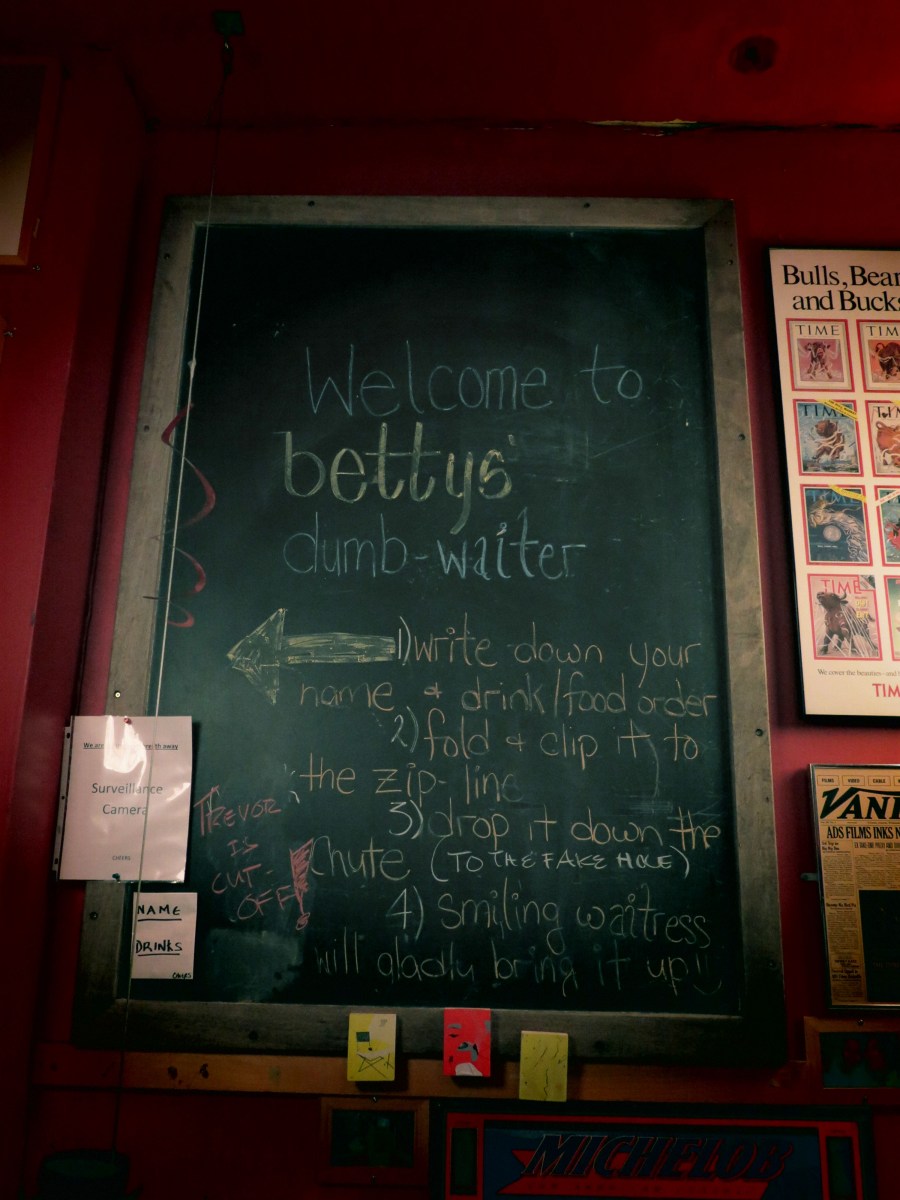 Welcome to
bettys'
dumb-waiter
1) write down your
name & drink/food order
2) fold & clip it to
the zip-line
3) drop it down the
chute (TO THE FAKE HOLE)
4) Smiling waitress
will gladly bring it up!!
TREVOR
IS
CUT-
OFF!
We are away
Surveillance
Camera
CHEERS
NAME
DRINKS
Bulls, Bear
and Bucks
TIME
TIM
TIME
TIME
TIME
TIM
FILMS VIDEO CABLE
VANI
ADS FILMS INKS N
MICHELOB